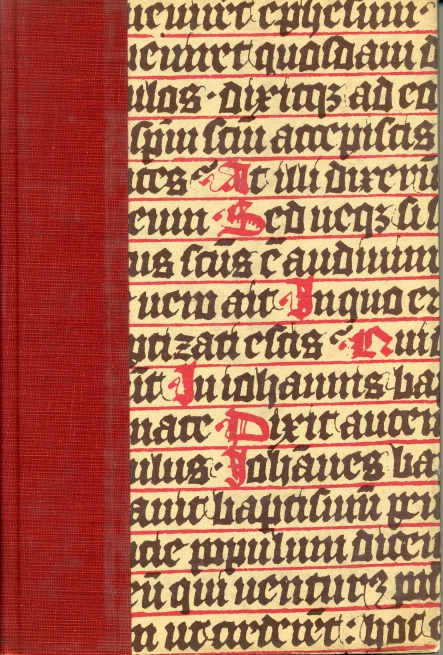 ueniret ephesum
ueniret quosdam d
ulos · dixitqꝫ ad eo
spm̄ scm̄ accepistis
ntes At illi dixerū
eum Sed neqꝫ si s
us scūs ē audiuim
uero ait In quo er
ptizati estis
it In iohannis ba
mate Dixit autem
ulus · Johānes ba
auit baptismū pe
tie populum dicen
eū qui uenturꝫ
n ut crederēt : hoc e